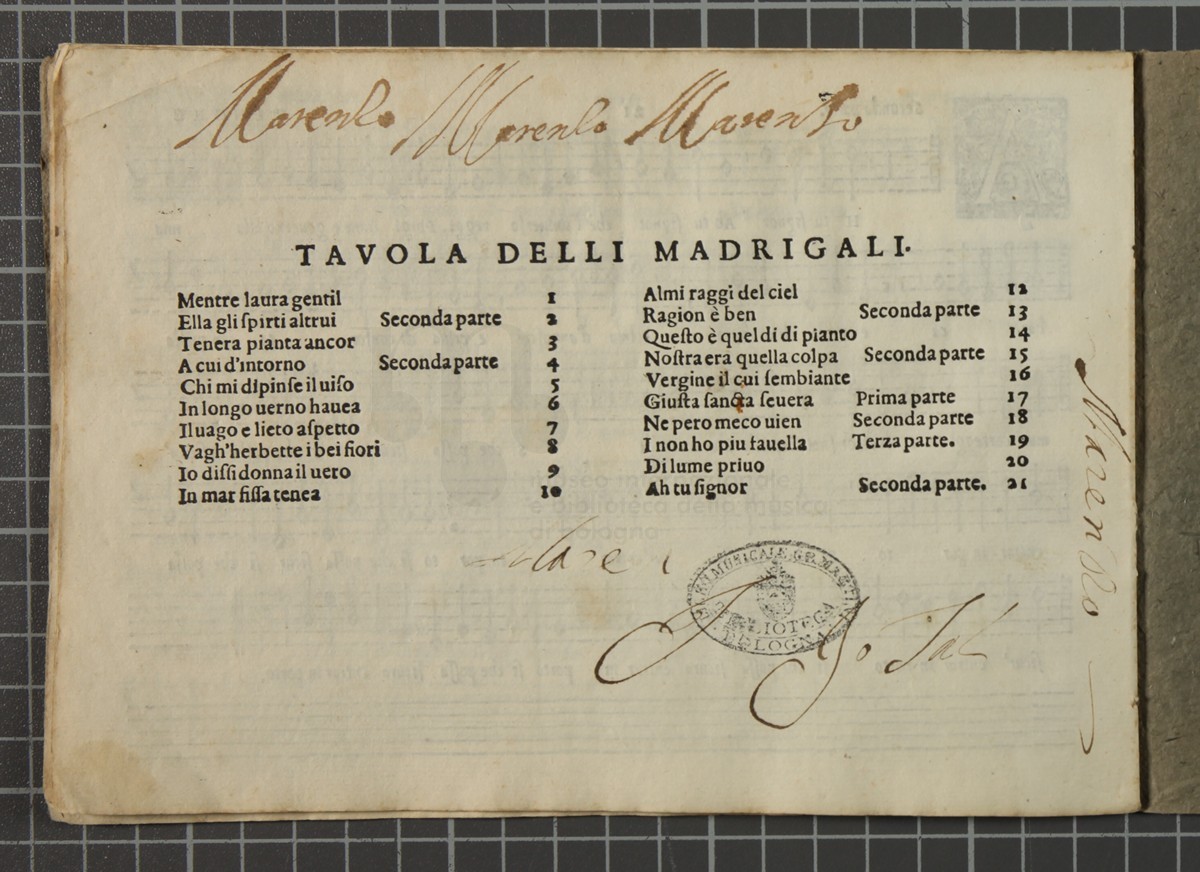 Marenlo Marenlo Marenlo
TAVOLA DELLI MADRIGALI.
Mentre laura gentil 1
Ella gli ſpirti altrui Seconda parte 2
Tenera pianta ancor 3
A cui d'intorno Seconda parte 4
Chi mi dipinſe il uiſo 5
In longo uerno hauea 6
Il uago e lieto aſpetto 7
Vagh'herbette i bei fiori 8
Io diſſi donna il uero 9
In mar fiſſa tenea 10
Almi raggi del ciel 12
Ragion è ben Seconda parte 13
Queſto è quel di di pianto 14
Noſtra era quella colpa Seconda parte 15
Vergine il cui ſembiante 16
Giuſta ſancta ſeuera Prima parte 17
Ne pero meco uien Seconda parte 18
I non ho piu fauella Terza parte. 19
Di lume priuo 20
Ah tu ſignor Seconda parte. 21
museo internazionale
e biblioteca della musica
di bologna
BIBLIOTECA
BOLOGNA